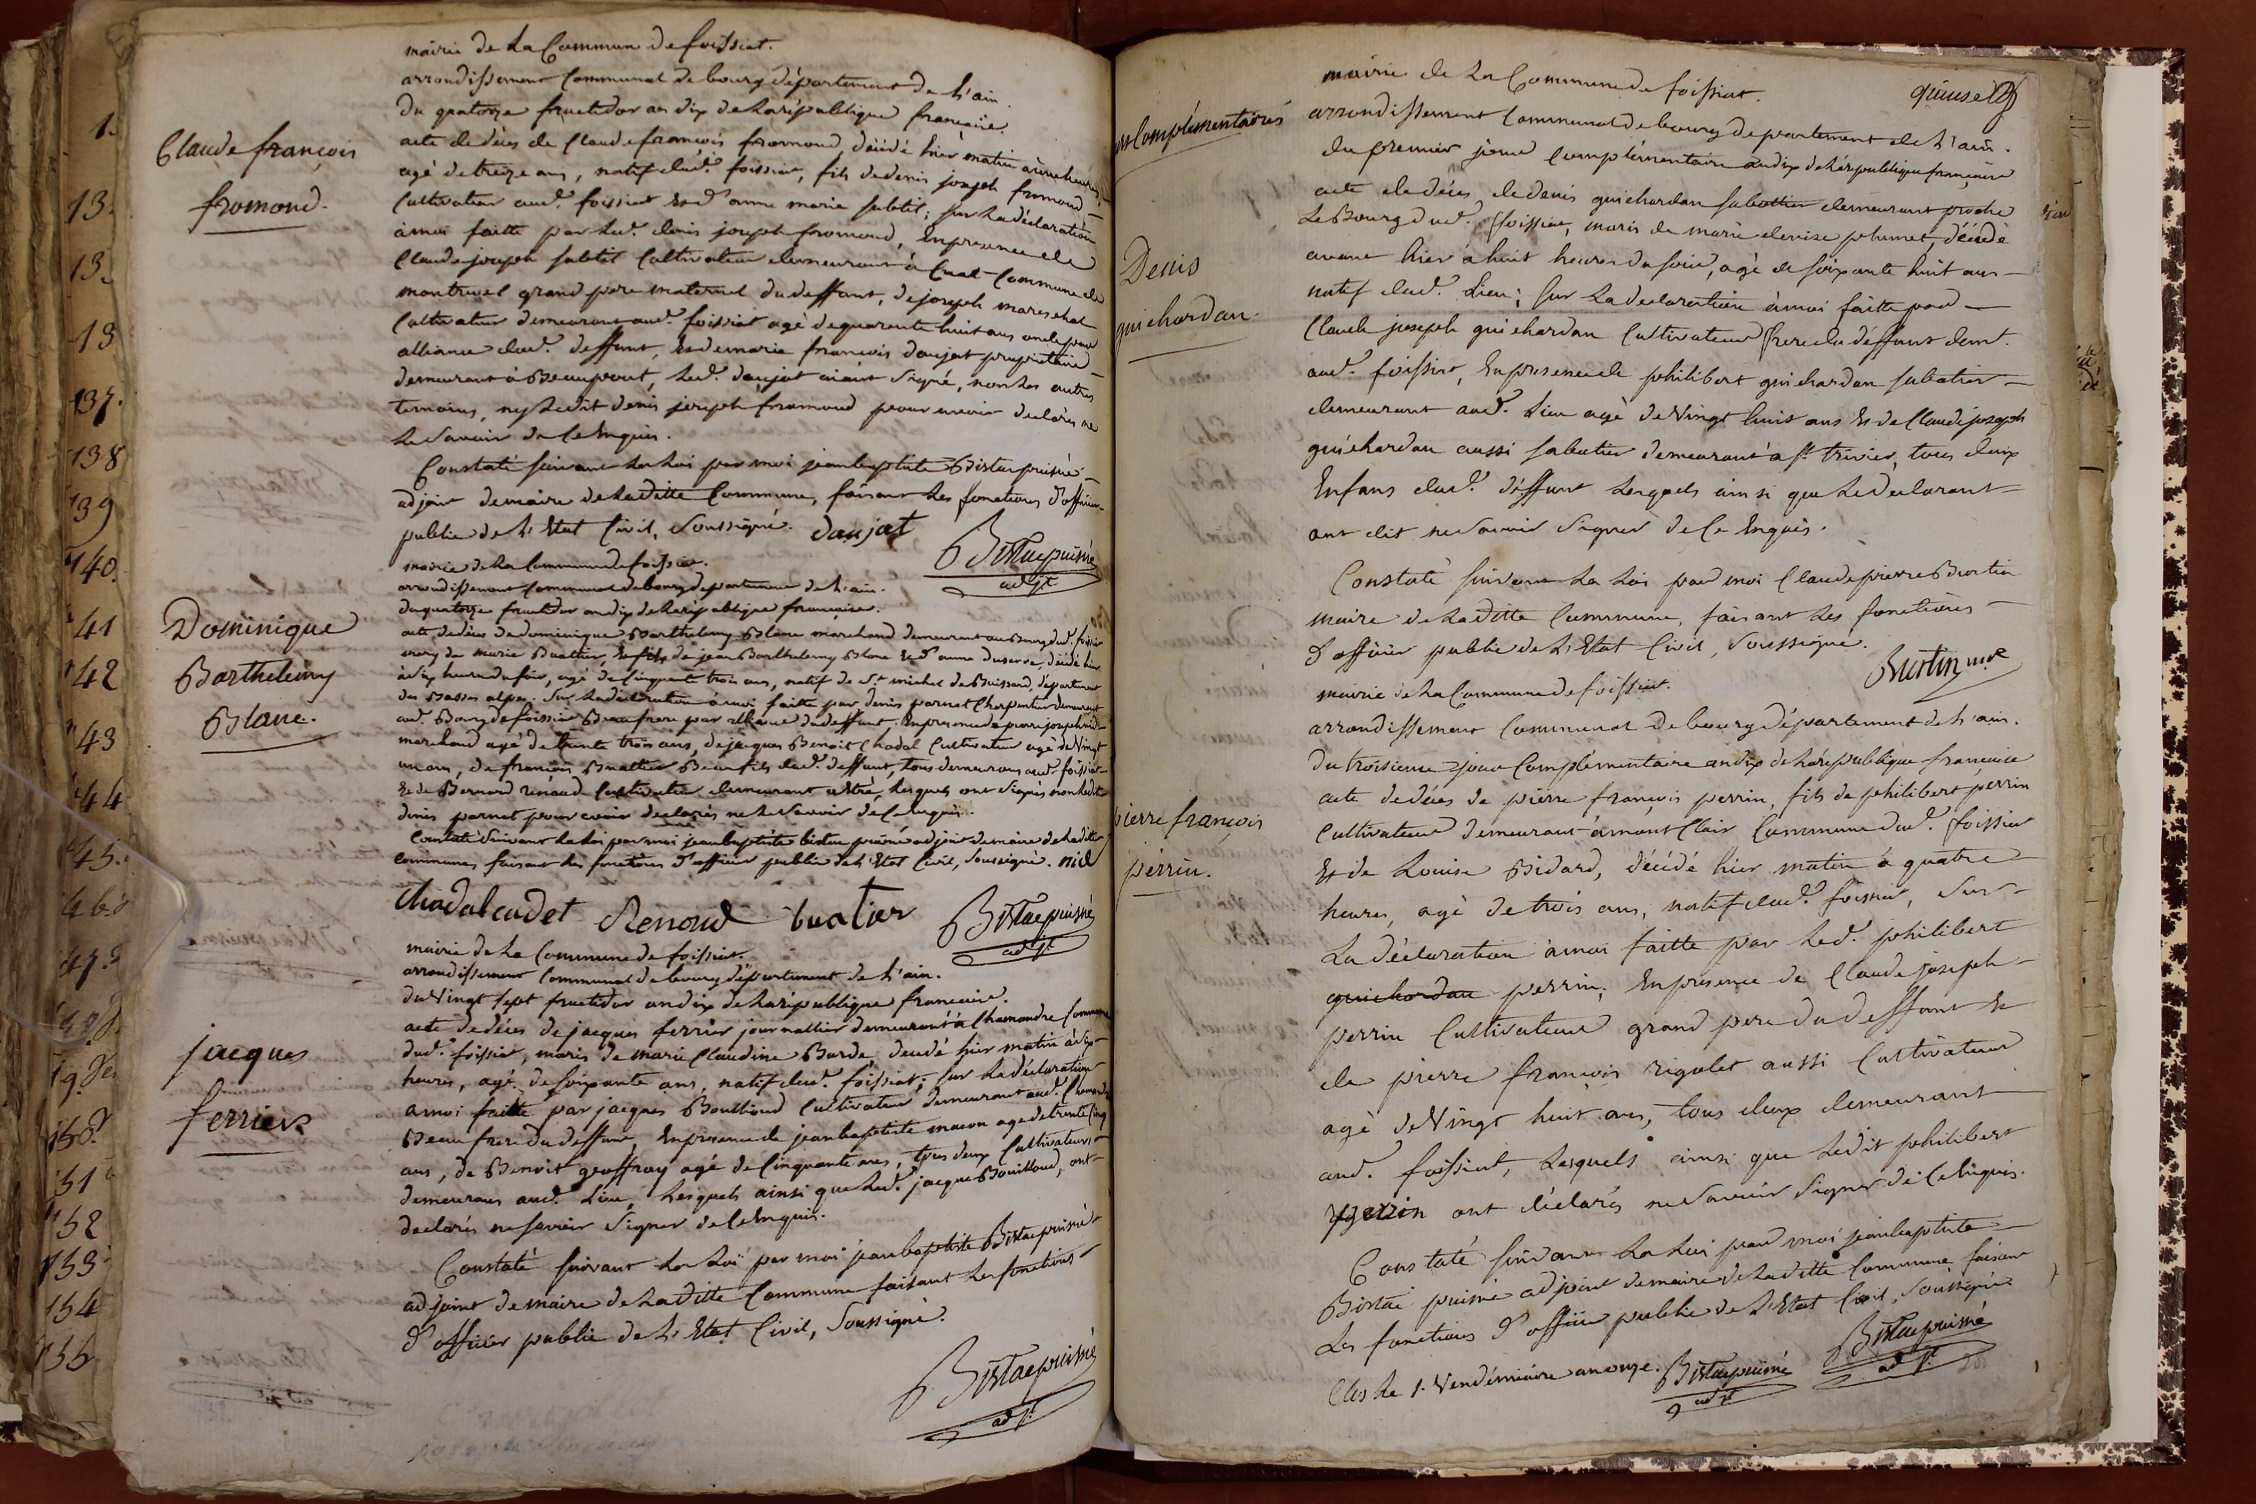 mairie de la Commune de foissiat.
arrondissement Communal de bourg département de l'ain.
Du quatorze fructidor an dix de la république française.
acte de décès de Claude françois fromond, décédé hier matin à onze heures,
agé de treize ans, natif dud. foissiat, fils de denis joseph fromond
Cultivateur aud. foissiat Et d'anne marie subtil; sur la déclaration
à moi faitte par led. denis joseph fromond, En présence de
Claude joseph subtil Cultivateur demeurant à Cuet Commune de
montrevel grand pere maternel du deffunt, de joseph mareschal
Cultivateur demeurant aud. foissiat agé de quarante huit ans oncle par
alliance dud. deffunt, Et de marie françois daujat propriétaire
demeurant à Beaupont, led. daujat aiant signé, non les autres
temoins, ny ledit denis joseph fromond pour avoir déclarés ne
le savoir de ce Enquis.
Constaté suivant la loi par moi jean baptiste Bistac puisné
adjoint de maire de laditte Commune, faisant les fonctions d'officier
public de l'Etat Civil, soussigné. daujat
Bistac puisné
adjt
Claude françois
fromond.
mairie de la Commune de foissiat.
arrondissement Communal de bourg département de l'ain.
du quatorze fructidor an dix de la république française.
acte de décès de dominique Barthelemy Blanc marchand demeurant au Bourg dud. foissiat
mary de marie Buattier, Et fils de jean Barthelemy Blanc Et d'anne duserre, décédé hier
à dix heures du soir, agé de Cinquante trois ans, natif de St michel de Buissard, département
des Basses alpes. Sur la déclaration à moi faitte par denis parnet Charpentier demeurant
aud. Bourg de foissiat Beau frere par alliance du deffunt. En présence de pierre joseph nid
marchand agé de trente trois ans, de jacques Benoit Chadal Cultivateur agé de Vingt
un ans, de françois Buattier Beau fils dud. deffunt, tous demeurans aud. foissiat
Et de Bernard renaud Cultivateur demeurant à, lesquels ont signés non ledit
denis parnet pour avoir declarés ne le savoir de ce Enquis.
Constaté suivant la loi par moi jean baptiste bistac puisné adjoint de maire de laditte
Commune, faisant les fonctions d'officier public de l'Etat Civil, soussigné. nid
Chadal cadet Renoud buatier
Bistac puisné
adjt
Dominique
Barthelemy
Blanc.
mairie de la Commune de foissiat.
arrondissement Communal de bourg département de l'ain.
du Vingt sept fructidor an dix de la république française.
acte de décès de jacques ferrier journallier demeurant à Chamandre Commune
dud. foissiat, maris de marie Claudine Barde, decedé hier matin à dix
heures, agé de soixante ans, natif dud. foissiat; sur la déclaration
a moi faitte par jacques Bouilloud Cultivateur demeurant aud. Chamandre
Beau frere du deffunt, En présence de jean baptiste macon agé de trente Cinq
ans, de Benoit geoffray agé de Cinquante ans, tous deux Cultivateurs
demeurans aud. Lieu, lesquels ainsi que led. jacque Bouilloud, ont
declarés ne savoir signer de ce Enquis.
Constaté suivant la Loi par moi jean baptiste Bistac puisné
adjoint de maire de laditte Commune faisant les fonctions
d'officier public de l'Etat Civil, soussigné.
Bistac puisné
adjt
jacques
ferrier
1.
13.
13.
13
137.
138
139
140.
141
142
143
144
145.
152
153
154
155
quinse
mairie de la Commune de foissiat.
arrondissement Communal de bourg département de l'ain.
du premier jour Complémentaire an dix de la république française
acte de décès de denis guichardan sabottier demeurant proche
le Bourg dud. foissiat, maris de marie denise plumet, décédé
avant hier à huit heures du soir, agé de soixante huit ans
natif dud. Lieu; sur la déclaration à moi faitte par
Claude joseph guichardan Cultivateur frere du deffunt demt.
aud. foissiat, En présence de philibert guichardan sabatier
demeurant aud. Lieu agé de Vingt huit ans Et de Claude joseph
guichardan aussi sabatier demeurant à St trivier, tous deux
Enfans dud. deffunt lesquels ainsi que le declarant
ont dit ne savoir signer de ce Enquis.
Constaté suivant la loi par moi Claude pierre Burtin
maire de laditte Commune, faisant les fonctions
d'officier public de l'Etat Civil, soussigné.
Burtin mre
Complémentaires
Denis
guichardan.
mairie de la Commune de foissiat.
arrondissement Communal de bourg département de l'ain.
du troisieme jour Complémentaire an dix de la république française
acte de décès de pierre françois perrin, fils de philibert perrin
Cultivateur demeurant à mont Clair Commune dud. foissiat
Et de Louise Bidard, décédé hier matin à quatre
heures, agé de trois ans, natif dud. foissiat, Sur
La déclaration à moi faitte par led. philibert
guichardan perrin; En présence de Claude joseph
perrin Cultivateur grand pere du deffunt Et
de pierre françois rigolet aussi Cultivateur
agé de Vingt huit ans, tous deux demeurant
aud. foissiat, lesquels ainsi que ledit philibert
perrin ont déclarés ne savoir signer de ce Enquis.
Constaté suivant la loi par moi jean baptiste
Bistac puisné adjoint de maire de laditte Commune faisant
Les fonctions d'officier public de l'Etat Civil, soussigné
Bistac puisné
adjt
Clos le 1. Vendémiaire an onze. Bistac puisné
adjt
pierre françois
perrin.